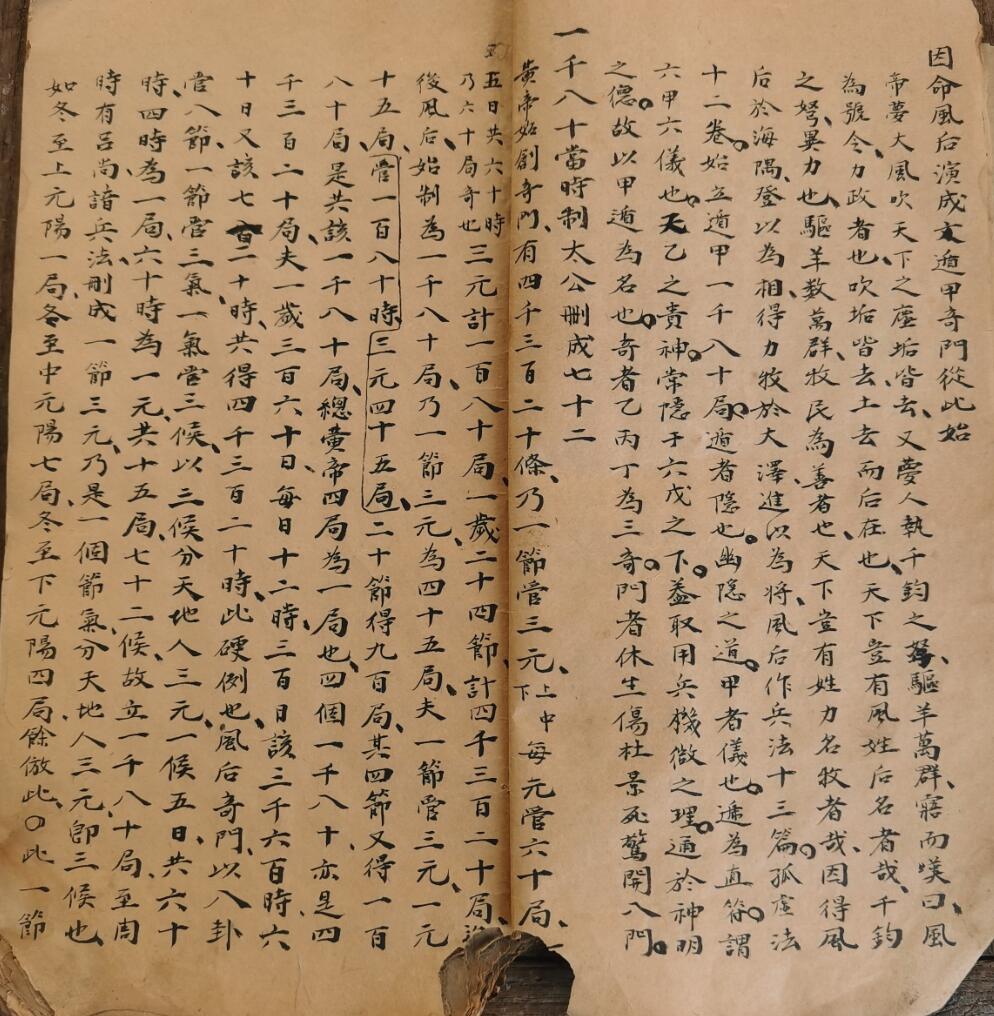 因命風后演成文遁甲奇門從此始
帝夢大風吹天下之塵垢皆去又夢人執千鈞之弩驅羊萬群寤而嘆曰風
為號令力政者也吹垢皆去土去而后在也天下豈有風姓后名者哉千鈞
之弩異力也驅羊數萬群牧民為善者也天下豈有姓力名牧者哉因得風
后於海隅登以為相得力牧於大澤進以為將風后作兵法十三篇孤虛法
十二卷始立遁甲一千八十局遁者隱也幽隱之道甲者儀也遁為直符謂
六甲六儀也天乙之貴神常隱于六戊之下蓋取用兵機微之理通於神明
之德故以甲遁為名也奇者乙丙丁為三奇門者休生傷杜景死驚開八門
一千八十當時制太公刪成七十二
黃帝始創奇門有四千三百二十條乃一節管三元上中下每元管六十局一
五日共六十時乃六十局奇也三元計一百八十局一歲二十四節計四千三百二十局
後風后始制為一千八十局乃一節三元為四十五局夫一節管三元一元
十五局管一百八十時三元四十五局二十節得九百局其四節又得一百
八十局是共該一千八十局總黃帝四局為一局也四個一千八十亦是四
千三百二十局夫一歲三百六十日每日十二時三百日該三千六百時六
十日又該七百二十時共得四千三百二十時此硬例也風后奇門以八卦
管八節一節管三氣一氣管三候以三候分天地人三元一候五日共六十
時四時為一局六十時為一元共十五局七十二候故立一千八十局至周
時有呂尚諳兵法刪成一節三元乃是一個節氣分天地人三元即三候也
如冬至上元陽一局冬至中元陽七局冬至下元陽四局餘倣此〇此一節